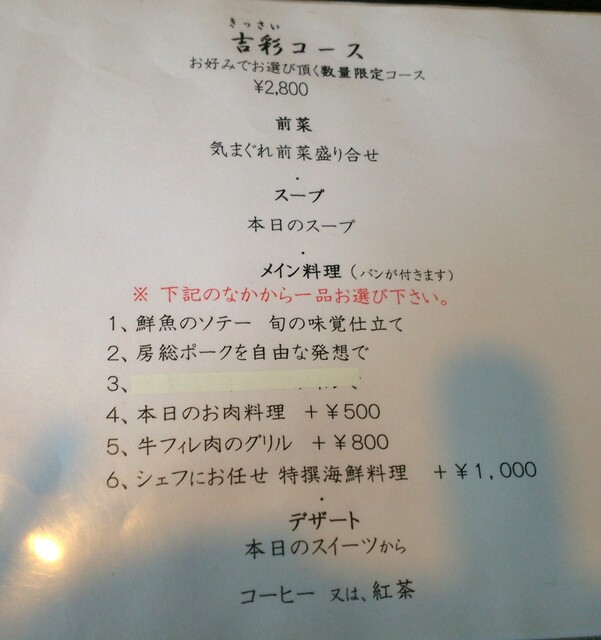 きっさい
吉彩コース
お好みでお選び頂く数量限定コース
¥2,800
前菜
気まぐれ前菜盛り合せ
・
スープ
本日のスープ
・
メイン料理(パンが付きます)
※ 下記のなかから一品お選び下さい。
1、鮮魚のソテー 旬の味覚仕立て
2、房総ポークを自由な発想で
3、
4、本日のお肉料理 +¥500
5、牛フィレ肉のグリル +¥800
6、シェフにお任せ 特撰海鮮料理 +¥1,000
・
デザート
本日のスイーツから
コーヒー 又は、紅茶